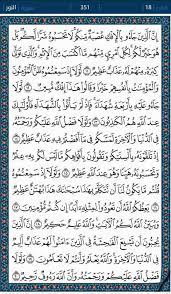 18
351
سورة النور
إِنَّ الَّذِينَ جَاءُو بِالْإِفْكِ عُصْبَةٌ مِّنكُمْ لَا تَحْسَبُوهُ شَرًّا لَّكُم بَلْ
هُوَ خَيْرٌ لَّكُمْ لِكُلِّ امْرِئٍ مِّنْهُم مَّا اكْتَسَبَ مِنَ الْإِثْمِ وَالَّذِي
تَوَلَّىٰ كِبْرَهُ مِنْهُمْ لَهُ عَذَابٌ عَظِيمٌ ١١ لَّوْلَا إِذْ سَمِعْتُمُوهُ ظَنَّ الْمُؤْمِنُونَ
وَالْمُؤْمِنَاتُ بِأَنفُسِهِمْ خَيْرًا وَقَالُوا هَٰذَا إِفْكٌ مُّبِينٌ ١٢ لَّوْلَا جَاءُو
عَلَيْهِ بِأَرْبَعَةِ شُهَدَاءَ فَإِذْ لَمْ يَأْتُوا بِالشُّهَدَاءِ فَأُولَٰئِكَ عِندَ اللَّهِ
هُمُ الْكَاذِبُونَ ١٣ وَلَوْلَا فَضْلُ اللَّهِ عَلَيْكُمْ وَرَحْمَتُهُ
فِي الدُّنْيَا وَالْآخِرَةِ لَمَسَّكُمْ فِي مَا أَفَضْتُمْ فِيهِ عَذَابٌ عَظِيمٌ ١٤
إِذْ تَلَقَّوْنَهُ بِأَلْسِنَتِكُمْ وَتَقُولُونَ بِأَفْوَاهِكُم مَّا لَيْسَ لَكُم بِهِ عِلْمٌ
وَتَحْسَبُونَهُ هَيِّنًا وَهُوَ عِندَ اللَّهِ عَظِيمٌ ١٥ وَلَوْلَا إِذْ سَمِعْتُمُوهُ
قُلْتُم مَّا يَكُونُ لَنَا أَن نَّتَكَلَّمَ بِهَٰذَا سُبْحَانَكَ هَٰذَا بُهْتَانٌ عَظِيمٌ ١٦
يَعِظُكُمُ اللَّهُ أَن تَعُودُوا لِمِثْلِهِ أَبَدًا إِن كُنتُم مُّؤْمِنِينَ ١٧
وَيُبَيِّنُ اللَّهُ لَكُمُ الْآيَاتِ وَاللَّهُ عَلِيمٌ حَكِيمٌ ١٨ إِنَّ الَّذِينَ
يُحِبُّونَ أَن تَشِيعَ الْفَاحِشَةُ فِي الَّذِينَ آمَنُوا لَهُمْ عَذَابٌ أَلِيمٌ
فِي الدُّنْيَا وَالْآخِرَةِ وَاللَّهُ يَعْلَمُ وَأَنتُمْ لَا تَعْلَمُونَ ١٩ وَلَوْلَا
فَضْلُ اللَّهِ عَلَيْكُمْ وَرَحْمَتُهُ وَأَنَّ اللَّهَ رَءُوفٌ رَّحِيمٌ ٢٠